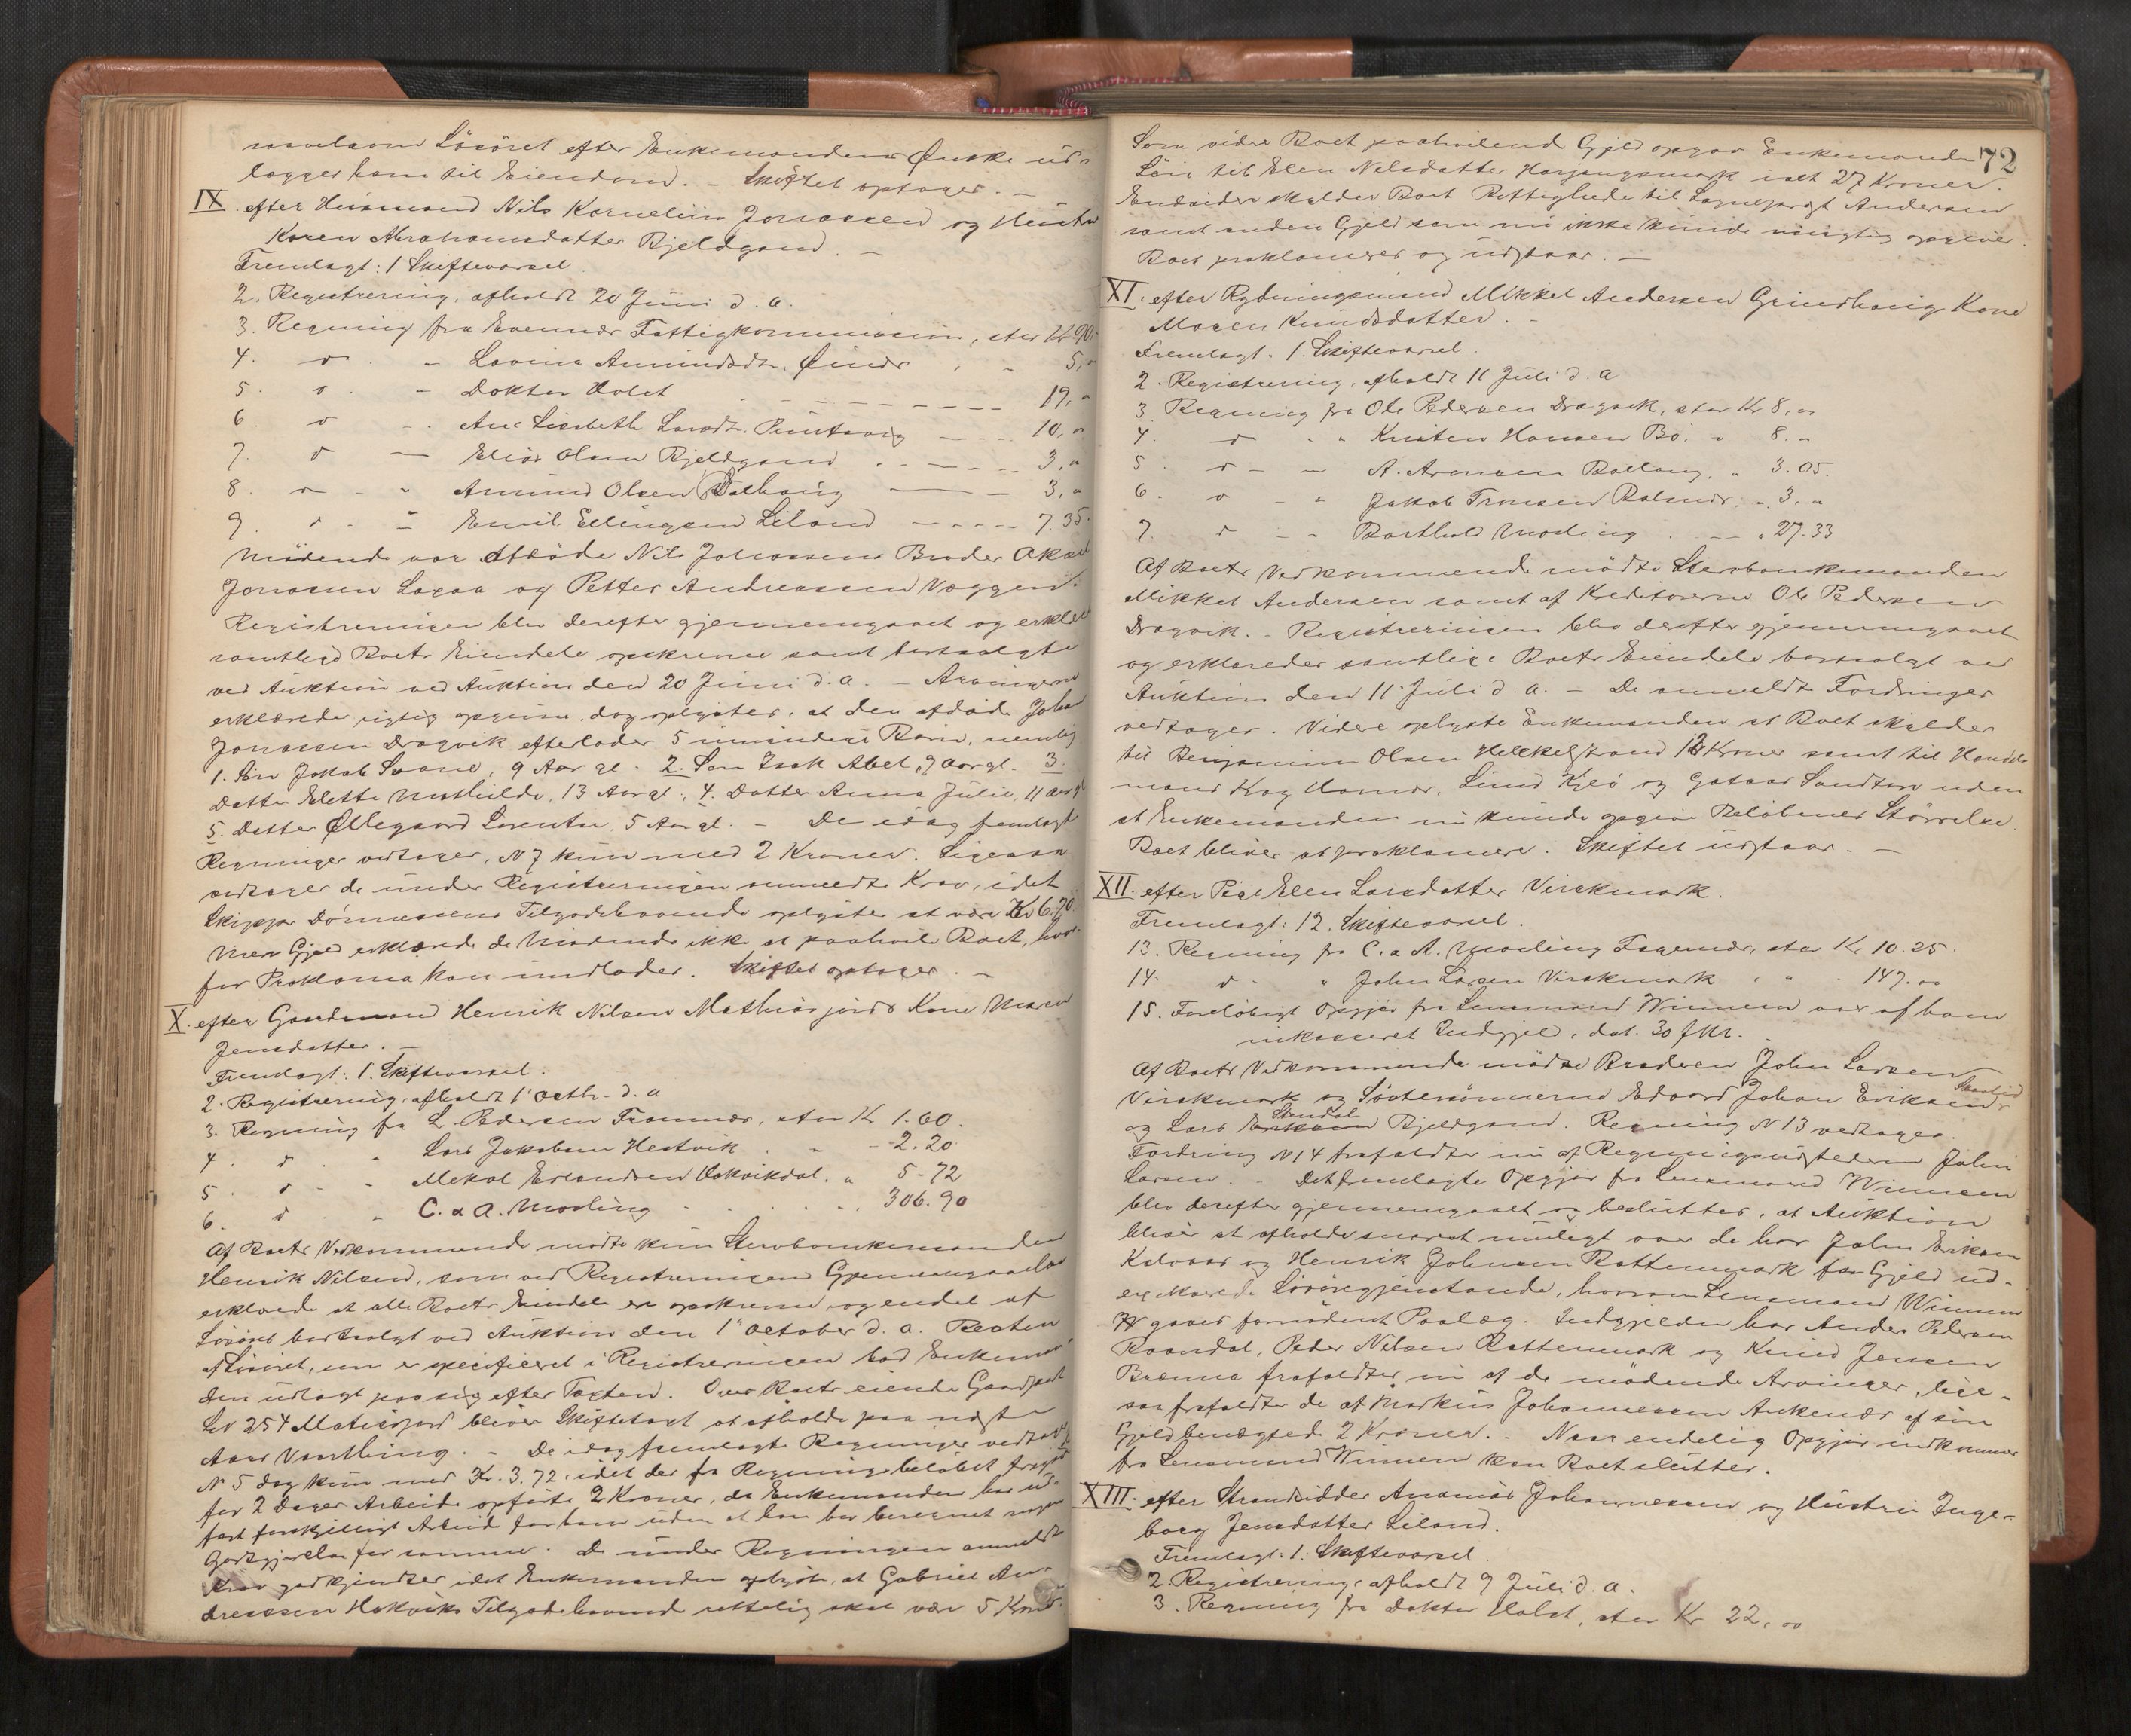 saavelsom Lösöret efter Enkemandens Ønske ud-
lægges ham til Eiendom. - Skiftet optages. -
IX. efter Huusmand Nils Kornelius Jonassen og Hustru
Karen Abrahamsdatter Bjeldgaard. -
Fremlagt: 1 Skiftevarsel.
2. Registrering, afholdt 20 Juni d. a.
3. Regning fra Evennæs Fattigkommission, stor Kr 90.
4. do - Lovina Amundsdtr. Øines " " 5,"
5. do - Doktor Holst - - - 19,"
6 do - Ane Lisbeth Larsdtr. - - - 10,"
7. do - Elias Olsen Bjeldgaard - - - 3,"
8. do - Amund Olsen - - - 3,"
9. do - Emil Ellingsen Liland - - - 7.35.
Mödende var Afdöde Nils Jonassens Broder Aksel
Jonassen Laxaa og Petter Andreassen Væggen.
Registreringen blev derefter gjennemgaaet og erklært
samtlige Boets Eiendele opskrevne samt bortsolgte
ved Auktion ved Auktion den 20 Juni d. a. - Arvingerne
erklærede rigtig opgivne, dog oplystes, at den afdöde Johan
Jonassen Dragvik efterlader 5 umyndige Börn, nemlig
1. Sön Jakob Svane, 9 Aar gl. 2. Sön Isak Abel, 7 Aar gl. 3.
Datter Elette Mathilde, 13 Aar gl., 4. Datter Anna Julie, 11 Aar gl
5. Datter Øllegaard Lorentse 5 Aar gl. - De idag fremlagte
Regninger vedtages, N 7 kun med 2 Kroner. Ligesaa
vedtages de under Registreringen anmeldte Krav, idet
Skipper Dönnessens Tilgodehavende oplystes at være Kr 6.70.
Mere Gjeld erklærede de Mödende ikke at paahvile Boet, hvor-
for Proklama kan undlades. Skiftet optages. -
X. efter Gaardmand Henrik Nilsen Mathiasjords Kone Maren
Jensdatter. -
Fremlagt: 1. Skiftevarsel.
2. Registrering, afholdt 1 Octbr. d. a
3. Regning fra L. Pedersen Framnæs, stor Kr 1.60.
4. do " Lars Jakobsen Hestvik " - 2.20
5. do - " Mekal Erlandsen " 5-72
6. do " C. & A. Moeling - . . . 306.90
Af Boets Vedkommende mödte kun Stervboenkemanden
Henrik Nilsen, som ved Registreringens Gjennemgaaelse
erklærede at alle Boets Eiendele er opskrevne, og endel af
Lösöret bortsolgt ved Auktion den 1' October d. a. Resten
af Lösöret, som er specificeret i Registreringen bad Enkeman-
den udlagt paa sig efter Taxten. Over Boets eiende Gaardpart
Lö 254 Matiasjord bliver Skiftetaxt at afholde paa næste
Aars Vaarthing. - De idag fremlagte Regninger vedtoges
N 5 dog kun med Kr. 3.72, idet der fra Regningsbelöbet
for 2 Dages Arbeide opförte 2 Kroner, da Enkemanden har ud-
fört forskjelligt Arbeid for ham uden at han har beregnet nogen
Godtgjörelse for samme. De under Regningen anmeldte
Krav godkjendtes idet Enkemanden oplyste, at Gabriel An-
dreassen Hokviks Tilgodehavend rettelig skal være 5 Kroner.
72
Som videre Boet paahvilende Gjeld opgav Enkemanden
Lön til Elen Nilsdatter Harjangsmark ialt 27 Kroner.
Endvidere skylder Boet Rettighede til Sogneprest Andersen
samt anden Gjeld som nu ikke kunde nöiagtig opgives.
Boet proklameres og udstaar. -
XI. efter Rydningsmand Mikkel Andersen Grindhaug Kone
Maren Knudsdatter. -
Fremlagt. 1. Skiftevarsel.
2. Registrering, afholdt 11 Juli d. a
3 Regning fra Ole Pedersen Dragvik, stor Kr 8,00
4. do " " Kristen Hansen Bö. " 8. "
5. do - " A. Aronsen Ballang, " 3.05.
6. do - " Jakob Tronsen " 3. "
7. do - " Barthold Moeling . - - " 27.33
Af Boets Vedkommende mödte Stervboenkemanden
Mikkel Andersen samt af Kreditorerne Ole Pedersen
Dragvik. - Registreringen blev derefter gjennemgaaet
og erklæredes samtlige Boets Eiendele bortsolgt ved
Auktion den 11' Juli d. a. - De anmeldte Fordringer
vedtages. Videre oplyste Enkemanden at Boet skylder
til Benjamin Olsen Hekkelstrand 12 Kroner samt til Handels-
mand Kog Hamnæs, Lund Kjeö og Gotaas Sandtorv uden
at Enkemanden nu kunde opgive Belöbenes Störrelse.
Boet bliver at proklamere. Skiftet udstaar. -
XII. efter Pige Elen Larsdatter Virakmark.
Fremlagt: 12. Skiftevarsel.
13. Regning fra C. & A. Moeling Fagernæs, stor Kr. 10.25.
14. do " John Larsen Virakmark " " 147.00
15. Foreløbigt Opgjör fra Lensmand Winnem over af ham
inkasseret Indgjeld, dat. 30 f M.
Af Boets Vedkommende mödte Broderen John Larsen
Virakmark og Söstersönnerne Edvard Johan Eriksen
og Lars Eriksen Stendal Bjeldgaard. Regning N 13 vedtages.
Fordring N 14 frafaldtes nu af Regningsudstederen John
Larsen. - Det fremlagte Opgjör fra Lensmand Winnem
blev derefter gjennemgaaet og besluttes, at Auktion
bliver at afholde snarest muligt over de hos John Eriksen
Kalvaas og Henrik Johnsen Bottenmark for Gjeld ud-
erg Marede Lösöregjenstande, hvorom Lensmand Winnem
gaves fornödent Paalæg. Indgjelden hos Anders Pedersen
Raandal, Peder Nilsen Bottenmark og Knud Jensen
Brænna frafaldtes nu af de mödende Arvinger, lige-
saa frafaldtes de at Markus Johannessen Ankenæs af sin
Gjeld benægted 2 Kroner. - Naar endelig Opgjör indkommer
fra Lensmand Winnem kan Boet sluttes.
XIII. efter Strandsidder Ananias Johannessen og Hustru Inge-
borg Jensdatter Liland.
Fremlagt: 1. Skiftevarsel.
2. Registrering, afholdt 9 Juli d. a.
3. Regning fra Doktor Holst, stor Kr 22,00